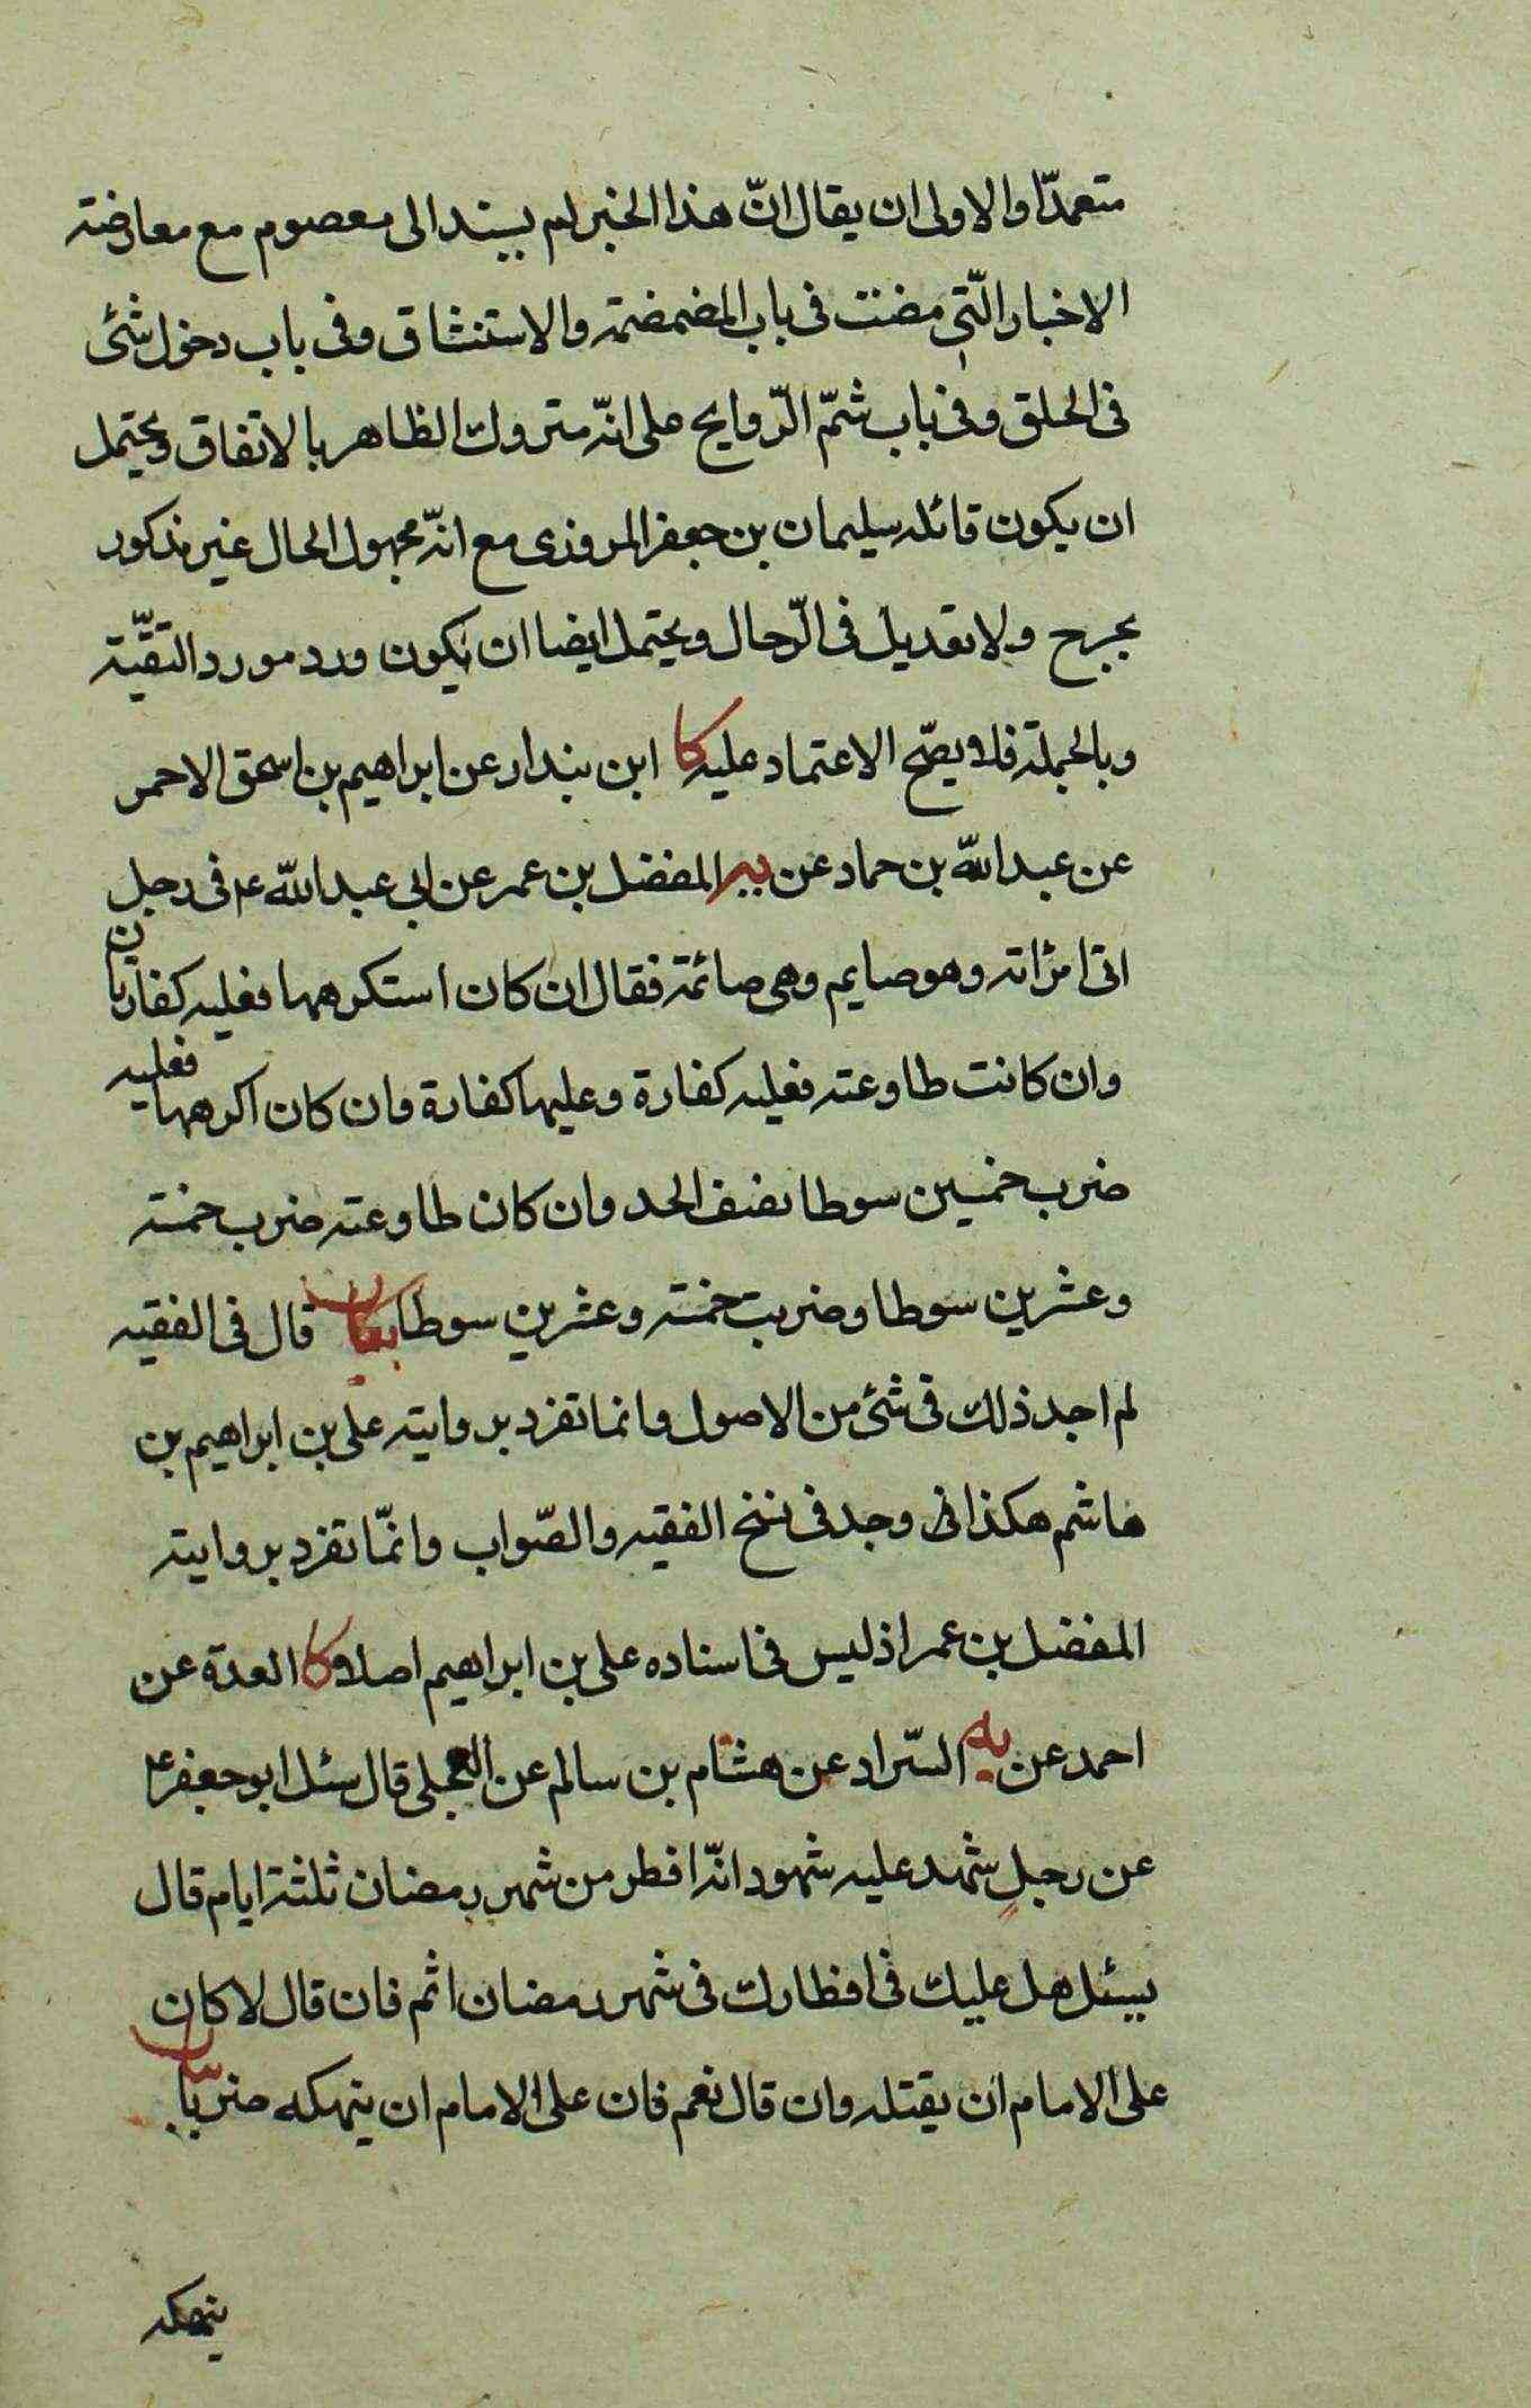 متعمدّا والاولى ان يقال انّ هذا الخبر لم يسند الى معصوم مع معارضته
الاخبار الّتى مضت فى باب المضمضمة والاستنشاق وفى باب دخول شئ
فى الحلق وفى باب شمّ الرّوايح على انّه متروك الظاهر بالاتفاق ويحتمل
ان يكون قائله سليمان بن جعفر المروزى مع انّه مجهول الحال غير مذكور
بجرح ولا تعديل فى الرّجال ويحتمل ايضا ان يكون ورد مورد التقيّة
وبالجملة فلا يصّح الاعتماد عليه كا ابن بندار عن ابراهيم بن اسحق الاحمر
عن عبد اللّه بن حماد عن يه المفضل بن عمر عن ابى عبد اللّه ع فى رجل
اتى امراته وهو صايم وهى صائمة فقال ان كان استكرهها فعليه كفارتان
وان كانت طاوعته فعليه كفارة وعليها كفارة وان كان اكرهها فعليه
ضرب خمسين سوطا نصف الحد وان كان طاوعته ضرب خمسة
وعشرين سوطا وضربت خمسة وعشرين سوطا بيان قال فى الفقيه
لم اجد ذلك فى شئ من الاصول وانما تفرد بروايته على بن ابراهيم بن
هاشم هكذا فى وجد فى نسخ الفقيه والصّواب وانّما تفرد بروايته
المفضل بن عمر اذ ليس فى اسناده على بن ابراهيم اصلا كا العدة عن
احمد عن يه السّراد عن هشام بن سالم عن العجلى قال سئل ابو جعفر ع
عن رجلٍ شهد عليه شهود انّه افطر من شهر رمضان ثلثة ايام قال
يسئل هل عليك فى افطارك فى شهر رمضان اثم فان قال لا كان
على الامام ان يقتله وان قال نعم فان على الامام ان ينهكه ضربا بيان
ينهكه